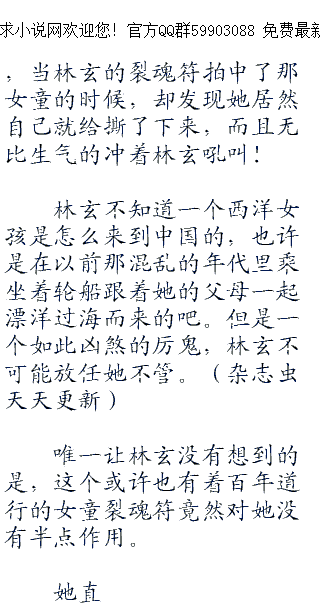 求小说网欢迎您！官方QQ群59903088 免费最新
，当林玄的裂魂符拍中了那
女童的时候，却发现她居然
自己就给撕了下来，而且无
比生气的冲着林玄吼叫！
林玄不知道一个西洋女
孩是怎么来到中国的，也许
是在以前那混乱的年代里乘
坐着轮船跟着她的父母一起
漂洋过海而来的吧。但是一
个如此凶煞的厉鬼，林玄不
可能放任她不管。（杂志虫
天天更新）
唯一让林玄没有想到的
是，这个或许也有着百年道
行的女童裂魂符竟然对她没
有半点作用。
她直